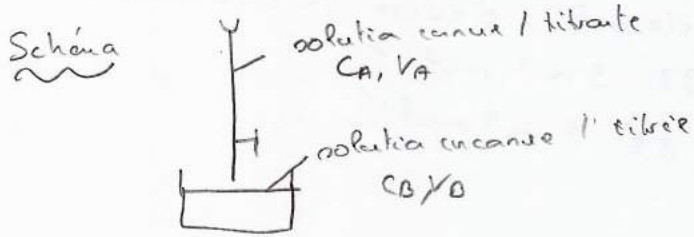 Schéma
solution connue / titrante
CA, VA
solution inconnue / titrée
CB, VB